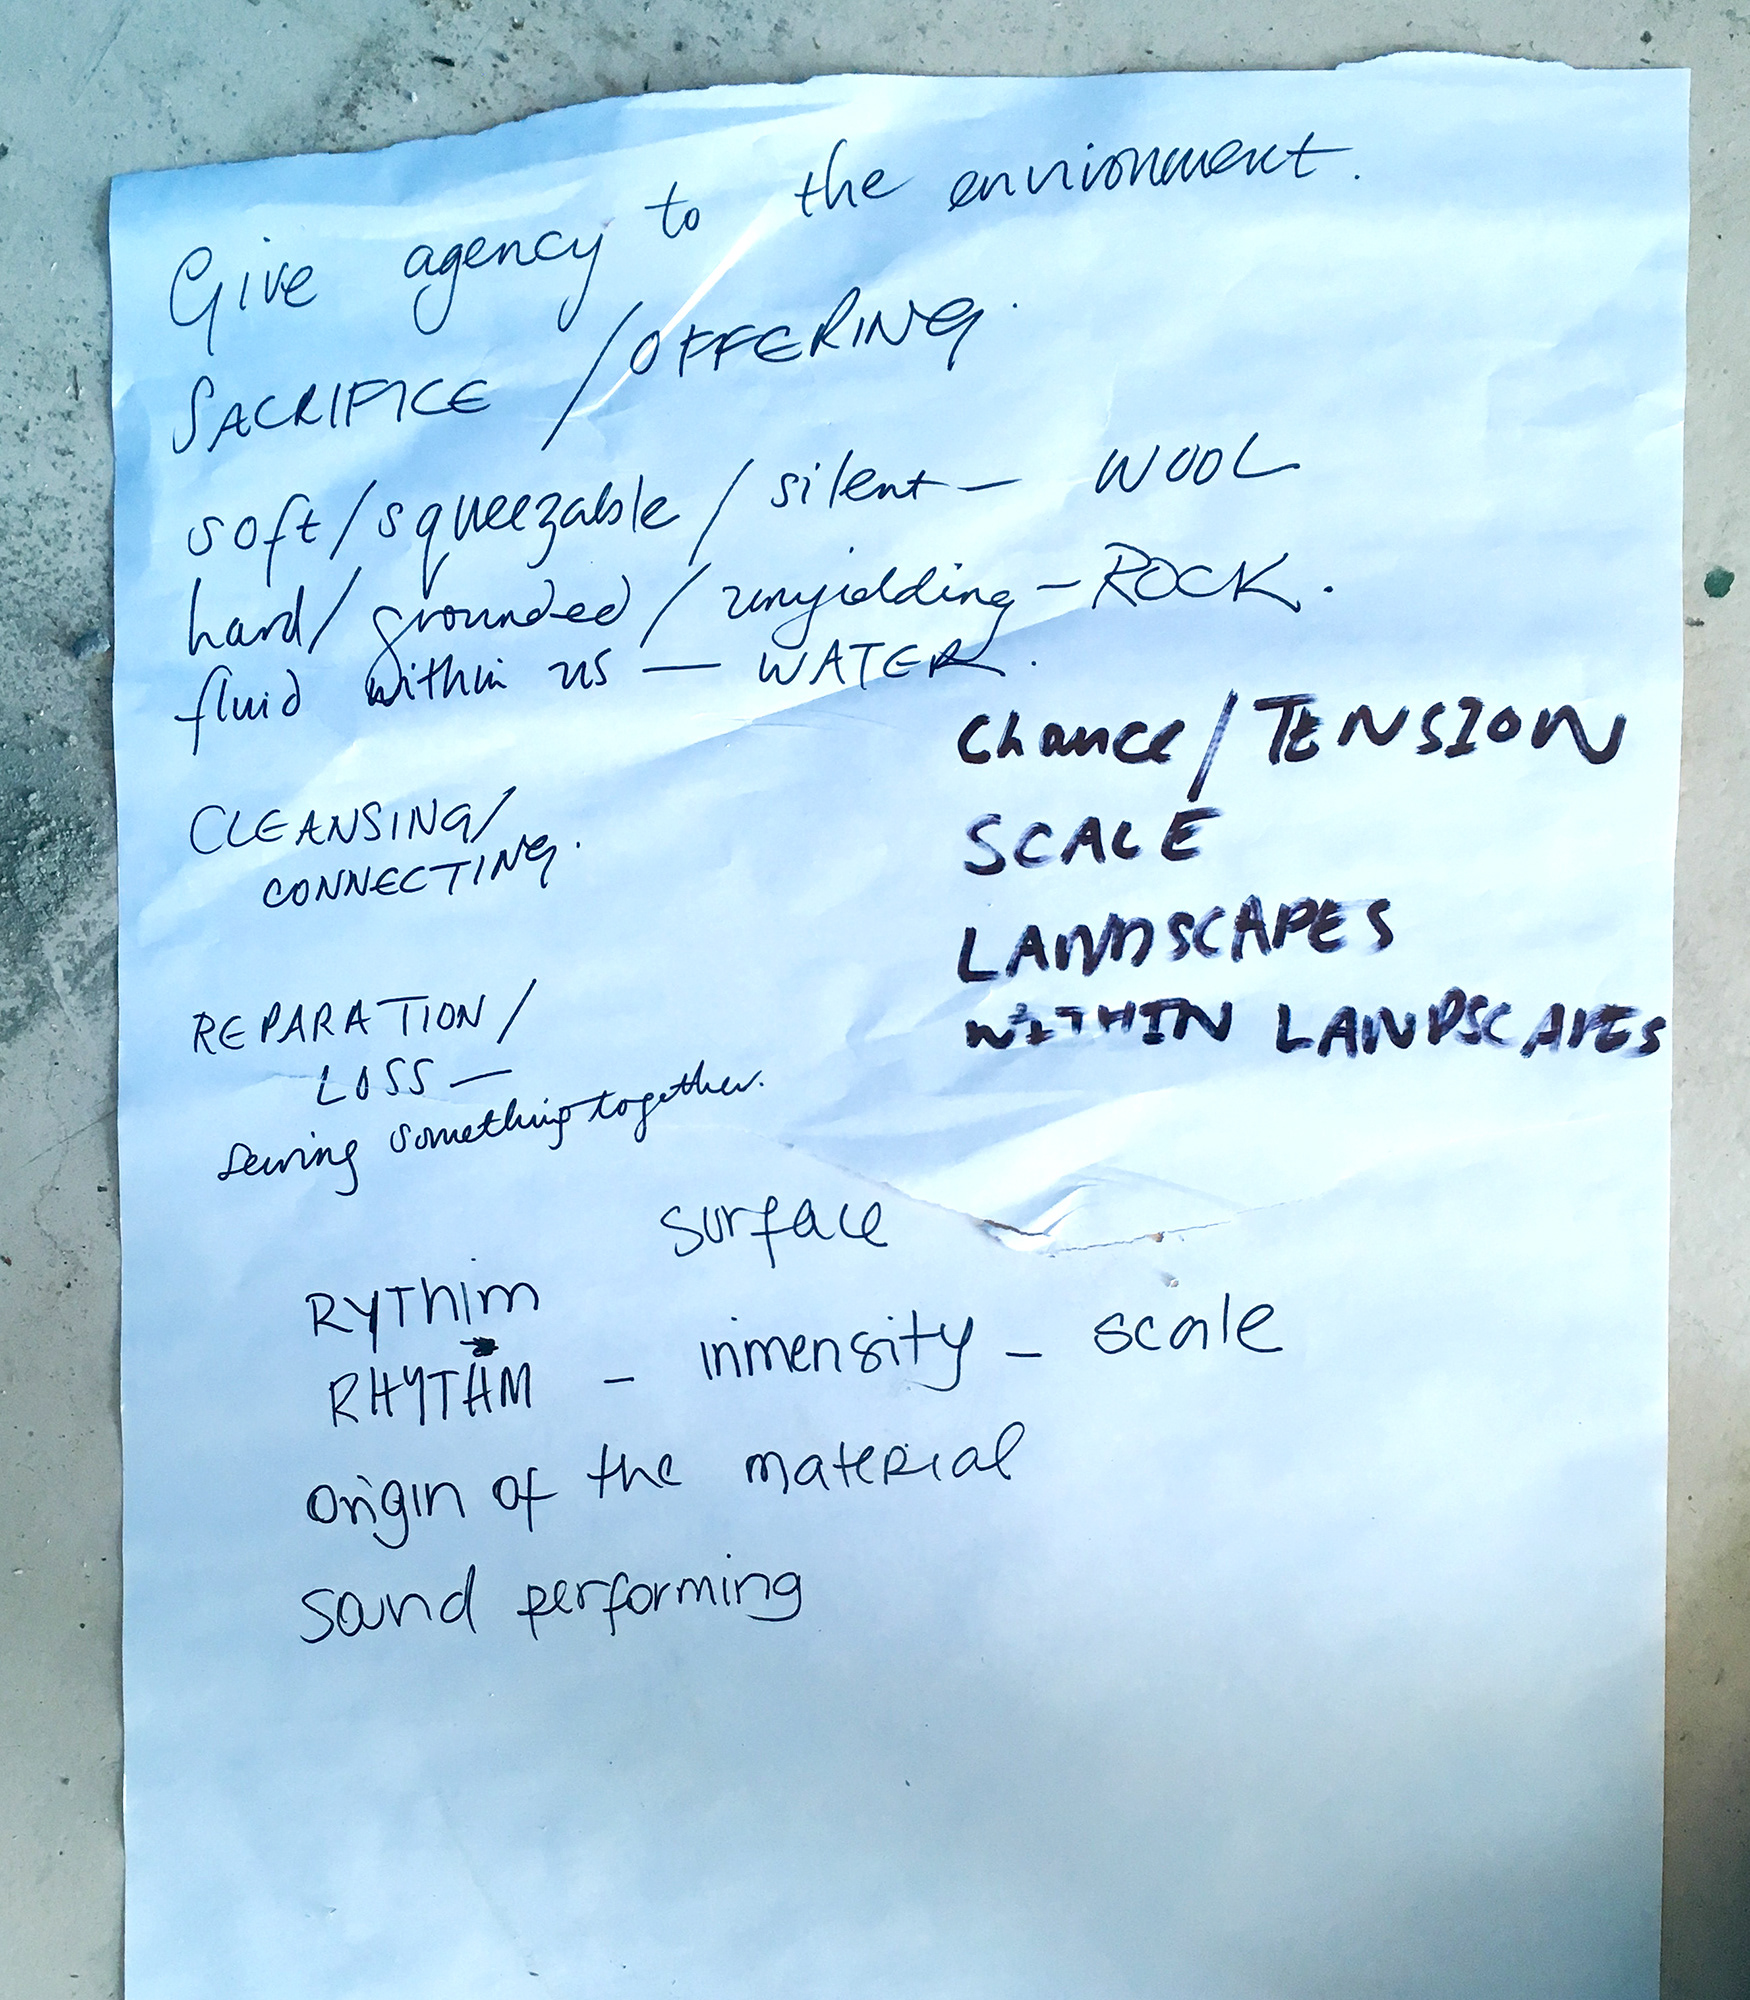 Give agency to the environment.
SACRIFICE / OFFERING.
soft/squeezable / silent — WOOL
hard/ grounded / unyielding — ROCK.
fluid within us — WATER.
Chance / TENSION
SCALE
LANDSCAPES
WITHIN LANDSCAPES
CLEANSING/
CONNECTING.
REPARATION /
LOSS —
Sewing something together.
surface
RYThim
RHYTHM – inmensity – scale
origin of the material
Sound performing